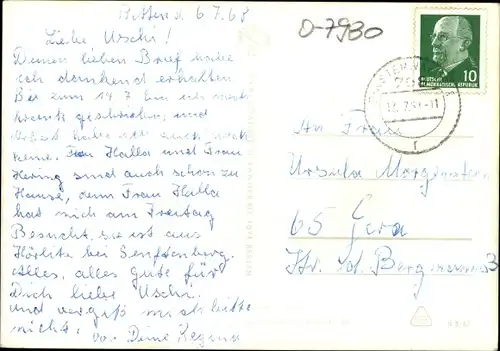 6.7.68
Liebe Uschi!
Deinen lieben Brief habe
ich dankend erhalten
Bis zum 14.7 bin ich noch
krank geschrieben, und
habe ich auch noch
keine. Frau Halla und Frau
Hering sind auch schon zu
Hause, denn Frau Halla
hat mich am Freitag
Besucht, sie ist aus
Hörlitz bei Senftenberg.
Alles, alles gute für
Dich liebe Uschi.
und vergiß mich bitte
nicht.
Deine Regina
D-7980
DEUTSCHE
DEMOKRATISCHE REPUBLIK
10
An Frau
Ursula Morgenstern
65 Gera
Str. d. Bergmanns 3